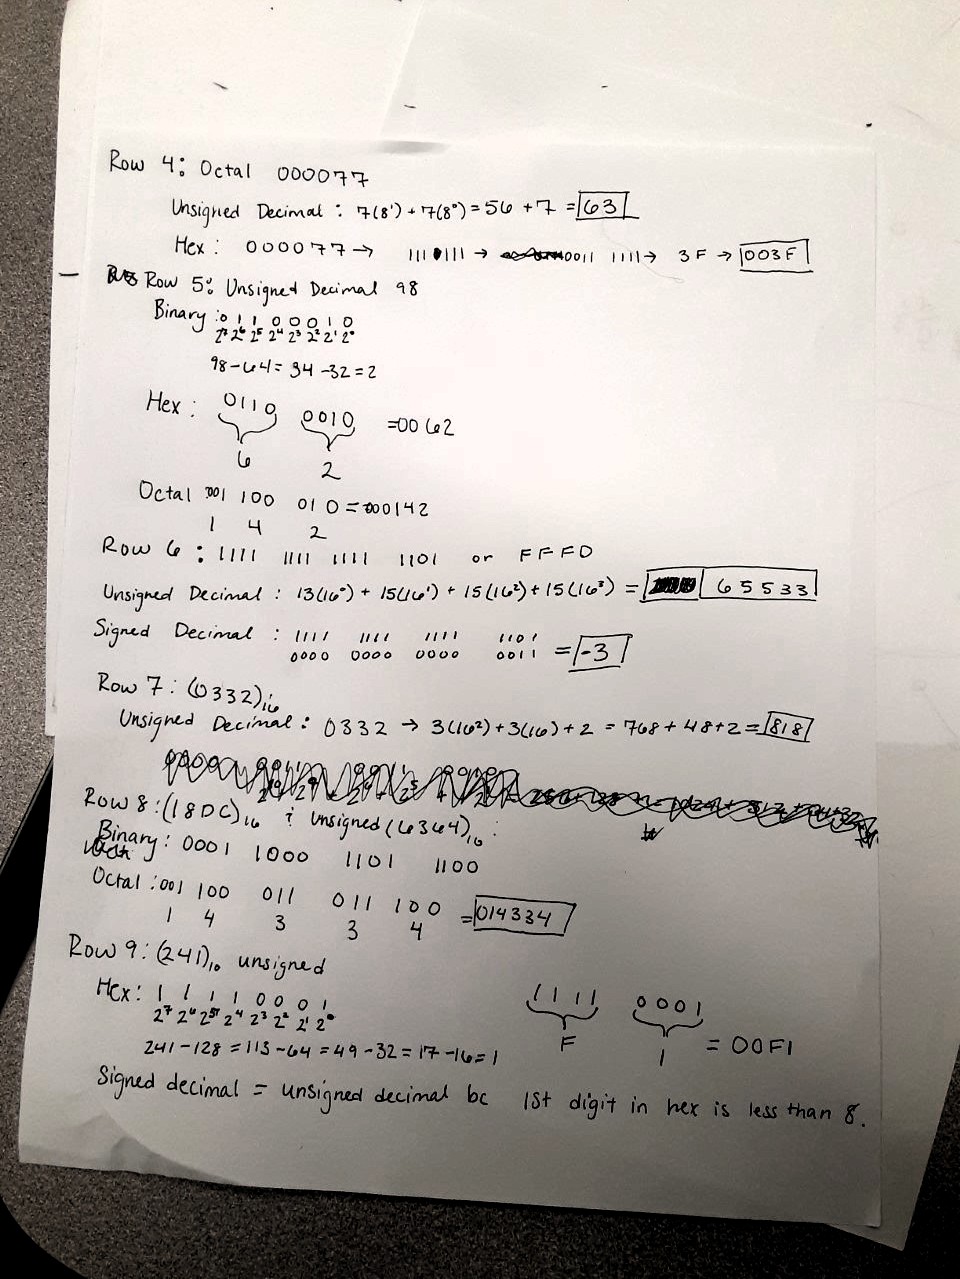 Row 4: Octal 000077
Unsigned Decimal: 7(8¹) + 7(8⁰) = 56 + 7 = 63
Hex: 000077 → 111 111 → 0011 1111 → 3F → 003F
Row 5: Unsigned Decimal 98
Binary: 0 1 1 0 0 0 1 0
2⁷ 2⁶ 2⁵ 2⁴ 2³ 2² 2¹ 2⁰
98-64 = 34 -32 = 2
Hex: 0110 0010 = 0062
6 2
Octal 001 100 010 = 000142
1 4 2
Row 6: 1111 1111 1111 1101 or FFFD
Unsigned Decimal: 13(16⁰) + 15(16¹) + 15(16²) + 15(16³) = 65533
Signed Decimal: 1111 1111 1111 1101
0000 0000 0000 0011 = -3
Row 7: (0332)₁₆
Unsigned Decimal: 0332 → 3(16²) + 3(16) + 2 = 768 + 48 + 2 = 818
Row 8: (18DC)₁₆ ; unsigned (6364)₁₆:
Binary: 0001 1000 1101 1100
Octal: 001 100 011 011 100 = 014334
1 4 3 3 4
Row 9: (241)₁₀ unsigned
Hex: 1 1 1 1 0 0 0 1 1111 0001
2⁷ 2⁶ 2⁵ 2⁴ 2³ 2² 2¹ 2⁰ F 1 = 00F1
241-128 = 113-64 = 49-32 = 17-16 = 1
Signed decimal = unsigned decimal bc 1st digit in hex is less than 8.